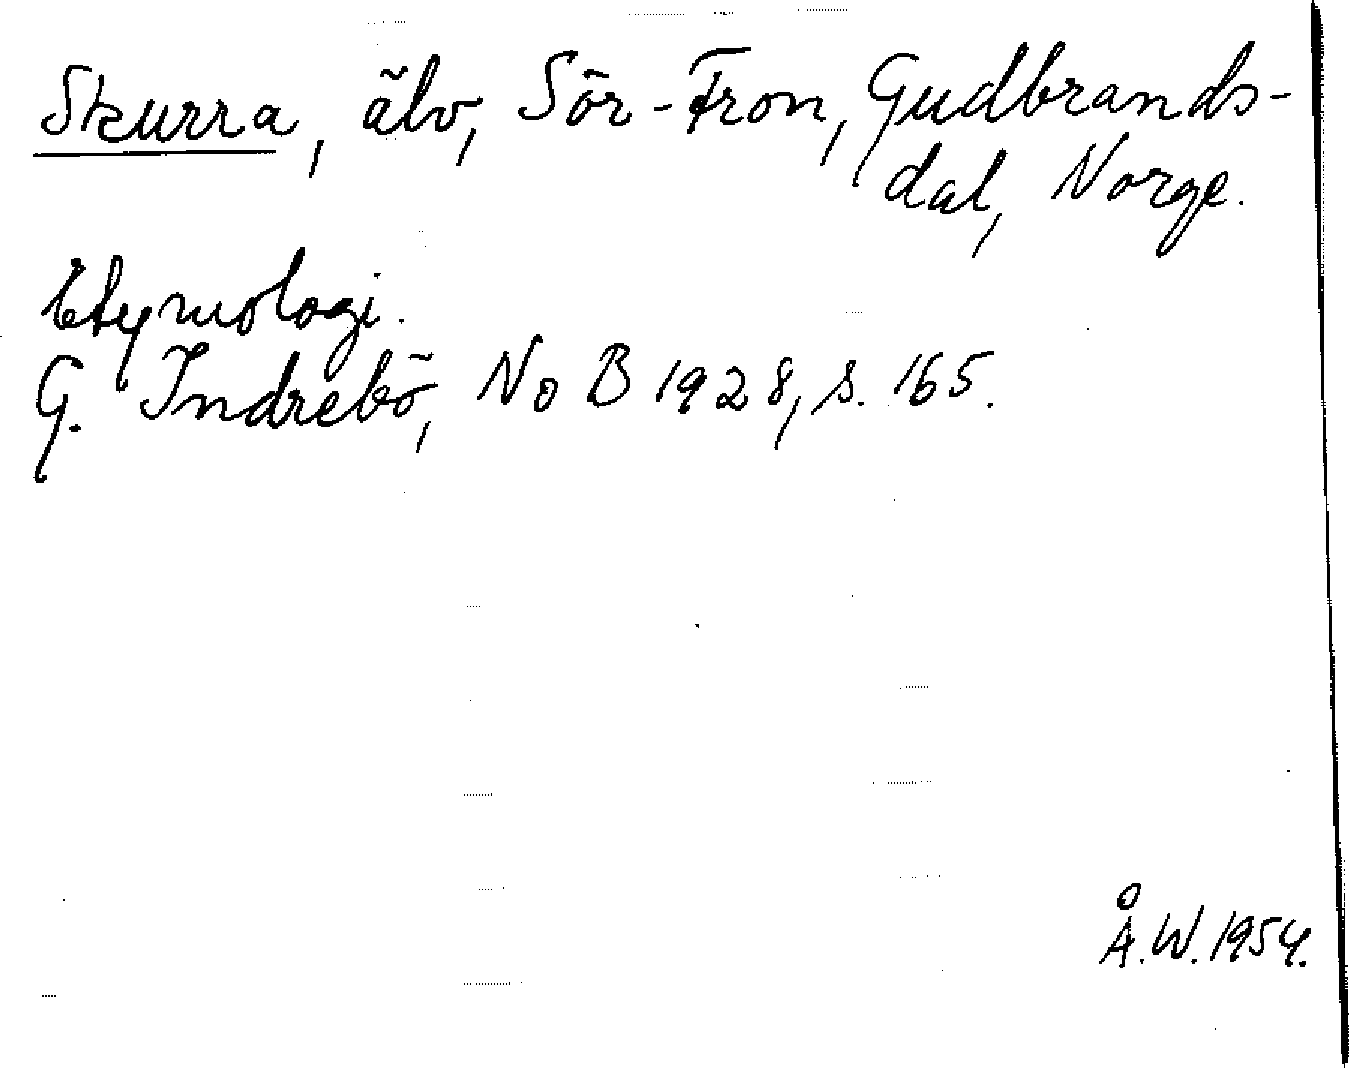 Skurra, älv, Sör-Fron, Gudbrands-
dal, Norge.
Etymologi.
G. Indrebö, No B 1928, s. 165.
Å.W. 1954.